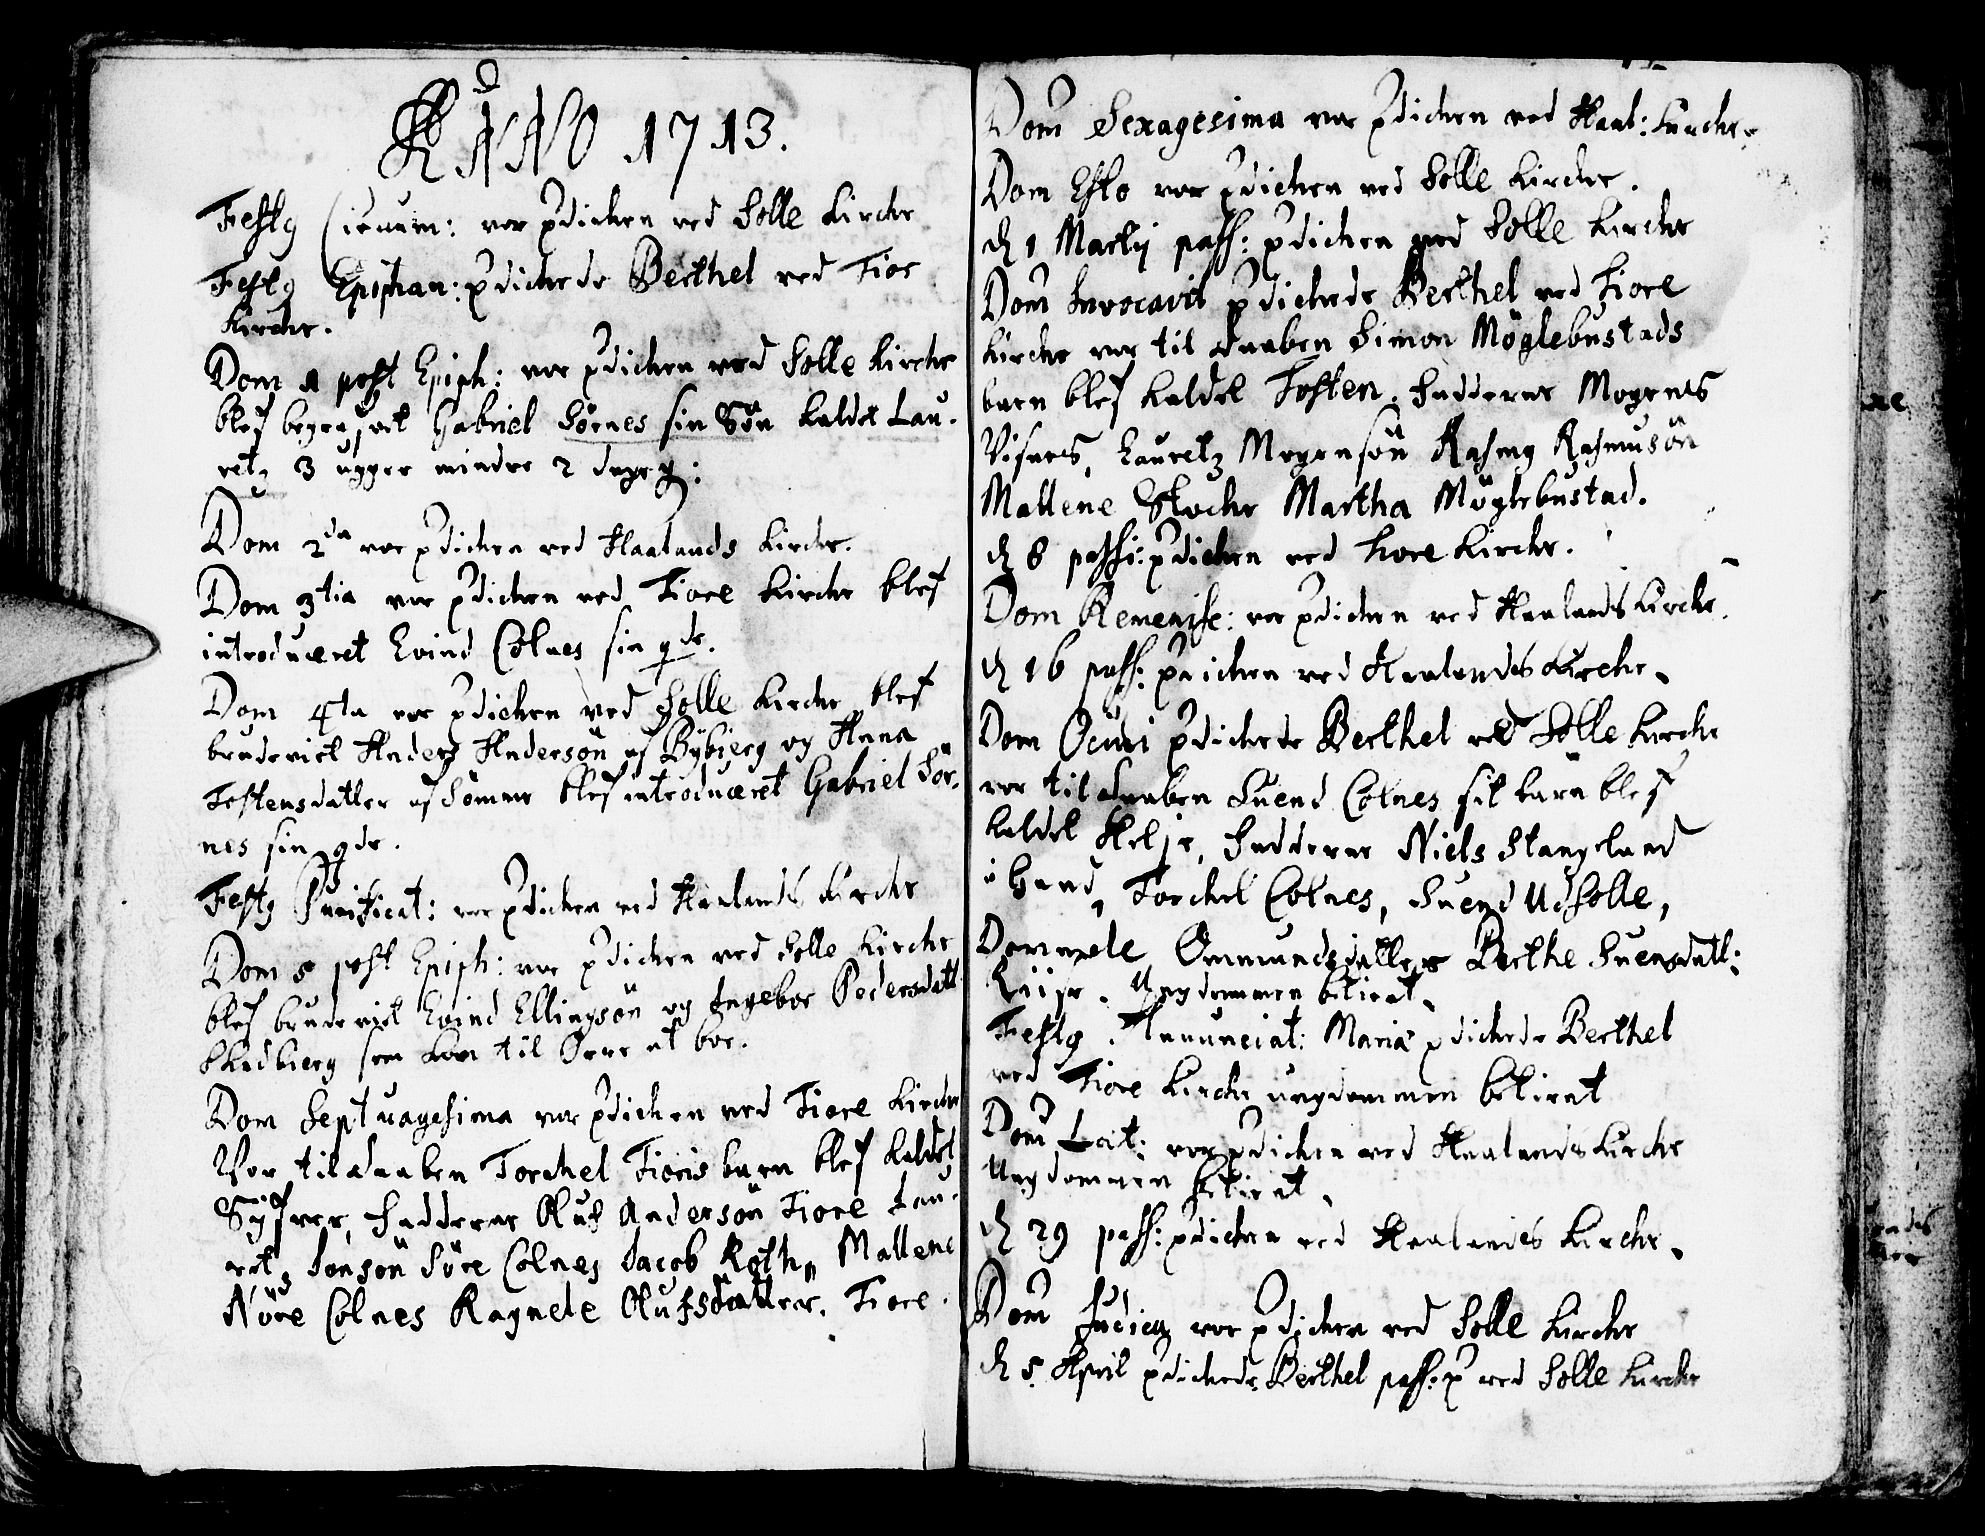 ANNO 1713.
Festg Circum: var pdichen ved Solle Kirche
Festg Epiphan: pdichede Berthel ved Tior
Kirche.
Dom 1 post Epiph: var pdichen ved Solle Kirche
blef begravet Gabriel Sörnes sin Sön kaldet Lau-
retz 3 ugger mindre 2 dage g:
Dom 2da var pdichen ved Haalands Kirche.
Dom 3tia var pdichen ved Tiore Kirche blef
introduceret Evind Colnes sin qde.
Dom 4ta var pdichen ved Solle Kirche blef
brudeviet Anders Andersön af Bybierg og Anna
Tostensdatter af Sömme blef introduceret Gabriel Sör-
nes sin qde.
Festg Purificat: var pdichen ved Haalands Kirche
Dom 5 post Epiph: var pdichen ved Solle Kirche
blef brudeviet Evind Ellingsön og Ingebor Pedersdatt
Skadbierg som kom til at boe.
Dom Septuagesima var pdichen ved Tiore Kirche
Var til daaben Torchel Tioris barn blef kaldet
Syfver, Fadderne Oluf Andersön Tiore Lau-
retz Jonsön Söre Colnes Jacob Roth, Mallene
Nöre Colnes Ragnele Olufsdatter. Tiore.
Dom Sexagesima var pdichen ved Haal: Kirche.
Dom Esto var pdichen ved Solle Kirche.
d 1 Martij pass: pdichen ved Solle Kirche
Dom Invocavit pdichede Berthel ved Tiore
Kirche var til daaben Simon Möglebustads
barn blef kaldet Tosten. Fadderne Mogens
Visnes, Lauretz Mogensön Rasmg Rasmusön
Mallene Stoche Martha Möglebustad.
d 8 passi: pdichen ved Tiore Kirche.
Dom Reminise: var pdichen ved Haalands Kirche.
d 16 pass: pdichen ved Haalandes Kirche.
Dom Oculi pdichede Berthel ved Solle Kirche
var til daaben Suend Colnes sit barn blef
kaldet Helje, Fadderne Niels Stangeland
Torchel Colnes, Suend Udsolle,
Ommundsdatter Berthe Suensdatt:
Riise. Ungdommen betient.
Festg. Annunciat: Mariæ pdichede Berthel
ved Tiore Kirche ungdommen betient
Dom Læt: var pdichen ved Haalands Kirche
Ungdommen betient.
d 29 pass: pdichen ved Haalandes Kirche.
Dom Judica var pdichen ved Solle Kirche
d 5 April pdichede Berthel pass: p ved Solle Kirche